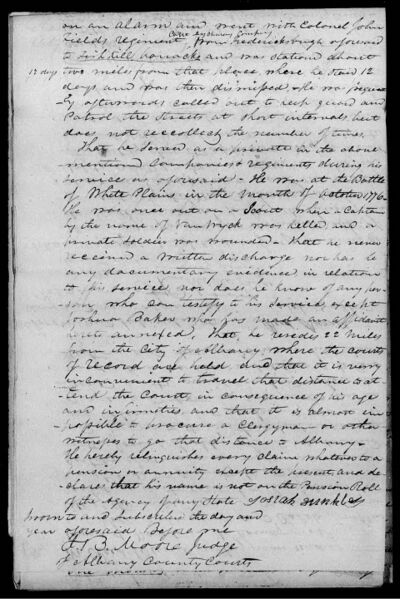 on an alarm and went with Colonel John
Fields regiment from Fredericksburgh aforesaid
to barracks and was stationed about
12 days two miles from that place, where he staid 12
days and was then dismissed. He was
afterwards called out to keep guard and
Patrol the streets at short intervals but
does not reccollect the number of times.
That he served as a private in the above
mentioned Companies & regiments during his
service as aforesaid - He was at the Battle
of White Plains in the month of October 1776.
He was once out on a Scout when a Captain
by the name of Van Wyck was killed and a
private soldier was wounded - that he never
received a written discharge nor has he
any documentary evidence in relation
to his services, nor does he know of any per-
son who can testify to his services except
Joshua Baker who has made an affidavit
hereto annexed, That he resides 22 miles
from the City of Albany where the courts
of record are held and that it is very
inconvenient to travel that distance to at-
tend the Court, in consequence of his age
and infirmities and that it is almost im-
possible to procure a Clergyman or other
witnesses to go that distance to Albany -
He hereby relinquishes every claim whatever to a
pension or annuity except the present and de-
clares that his name is not on the Pension Roll
of the Agency of any State Josiah
Sworn to and Subscribed the day and
year aforesaid Before me
J. B. Moore Judge
of Albany County Courts